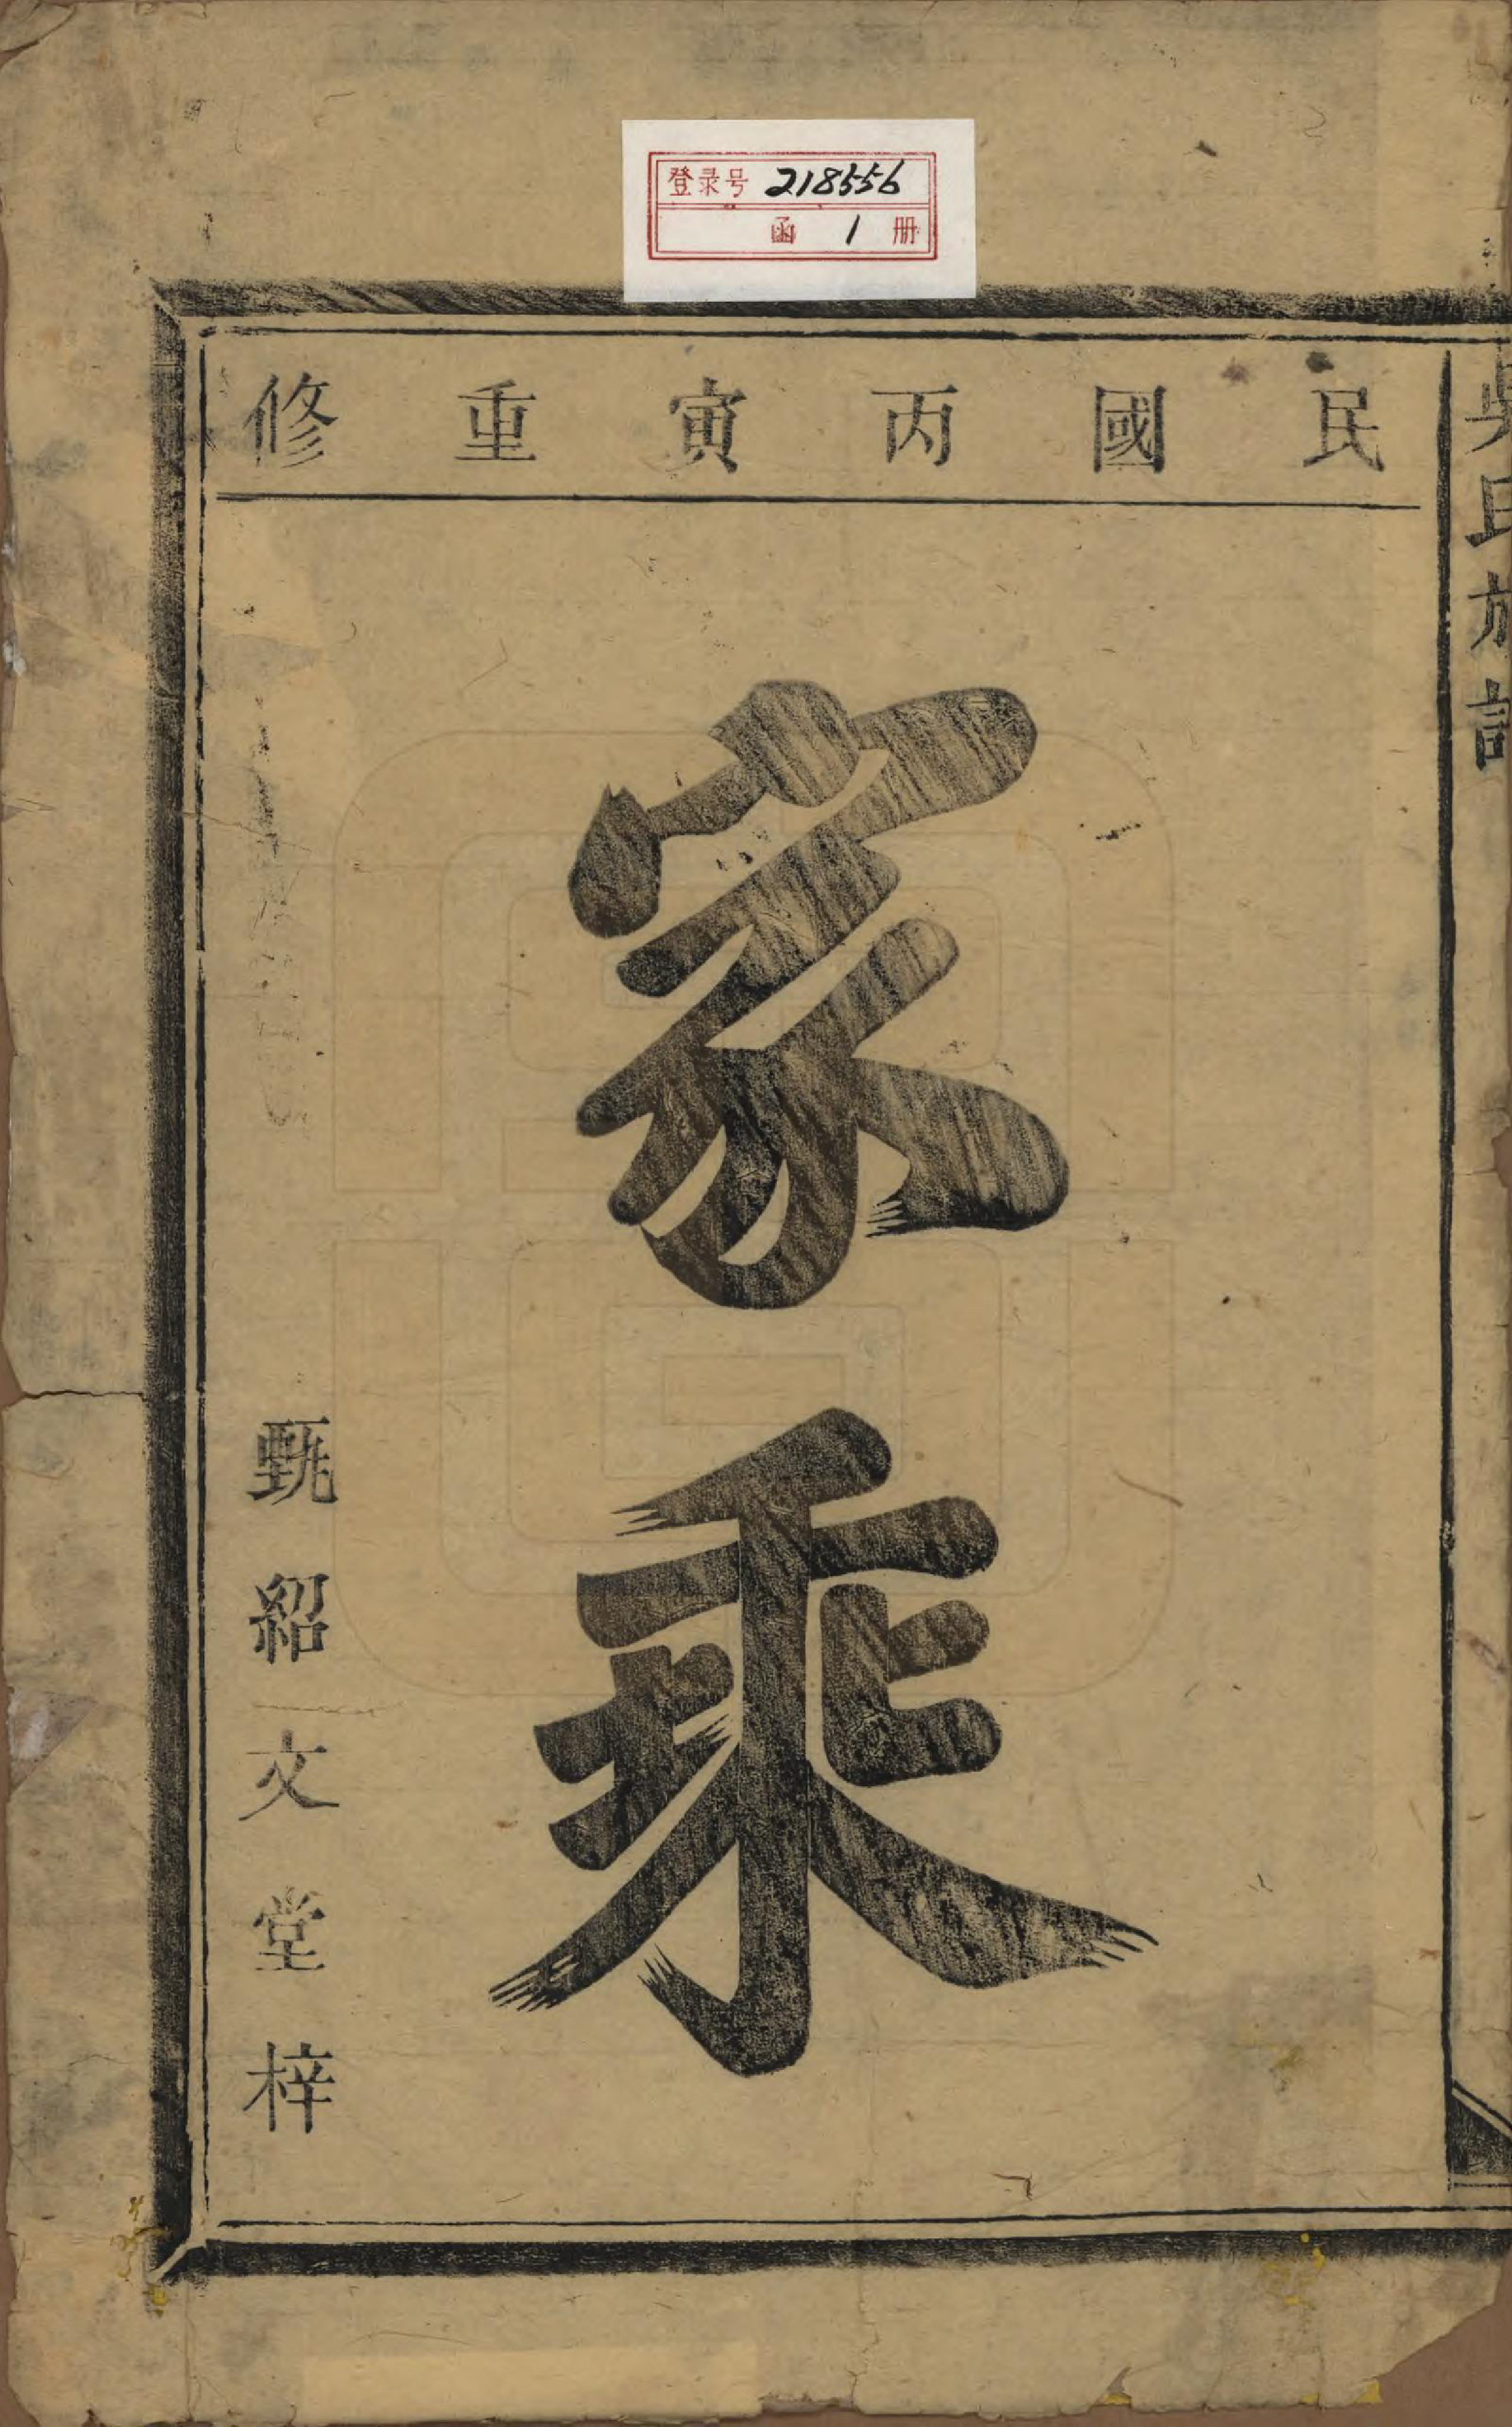 登录号 218556
函 1 册
民國丙寅重修
家乘
甄紹文堂梓
吳氏族譜